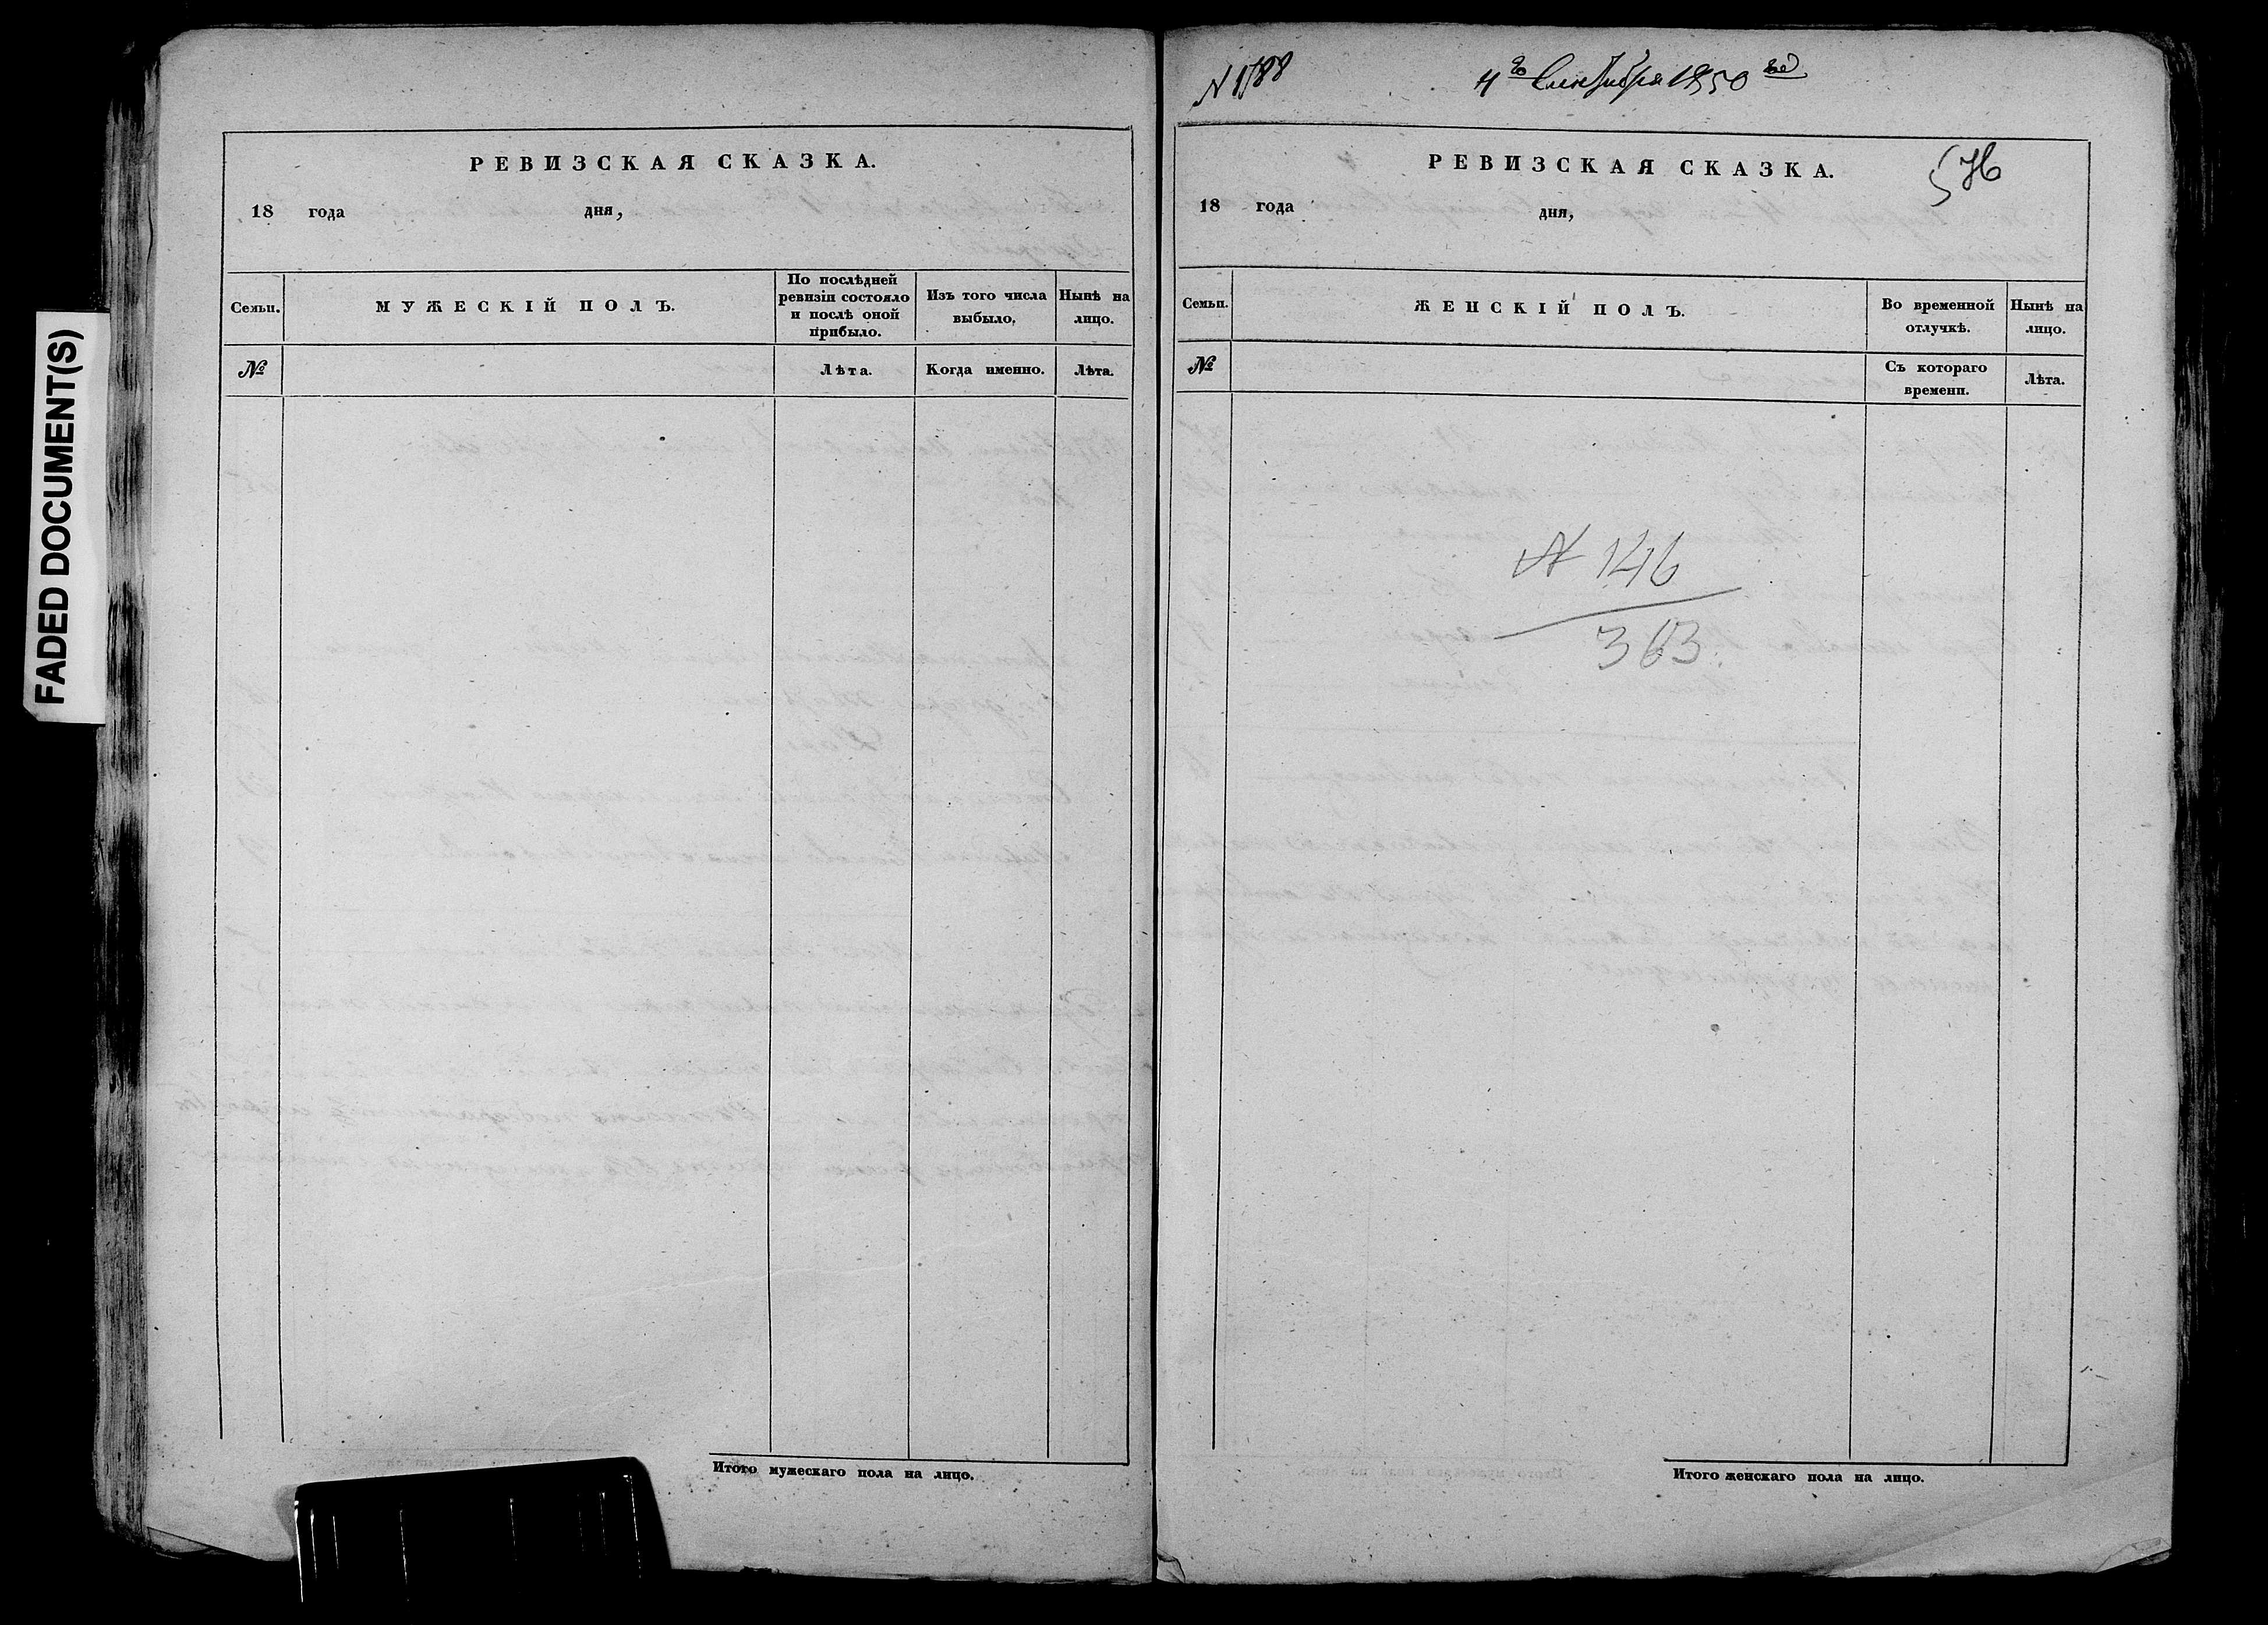 FADED DOCUMENT(S)
РЕВИЗСКАЯ СКАЗКА.
18 года дня,
Семьи.
МУЖЕСКІЙ ПОЛЪ.
По послѣдней
ревизіи состояло
и послѣ оной
прибыло.
Изъ того числа
выбыло.
Нынѣ на
лицо.
№
Лѣта.
Когда именно.
Лѣта.
Итого мужескаго пола на лицо.
4го Сентября 1850 год
РЕВИЗСКАЯ СКАЗКА.
18 года дня,
Семьи.
ЖЕНСКІЙ ПОЛЪ.
Во временной
отлучкѣ.
Нынѣ на
лицо.
№
Съ котораго
времени.
Лѣта.
N 146
363.
Итого женскаго пола на лицо.